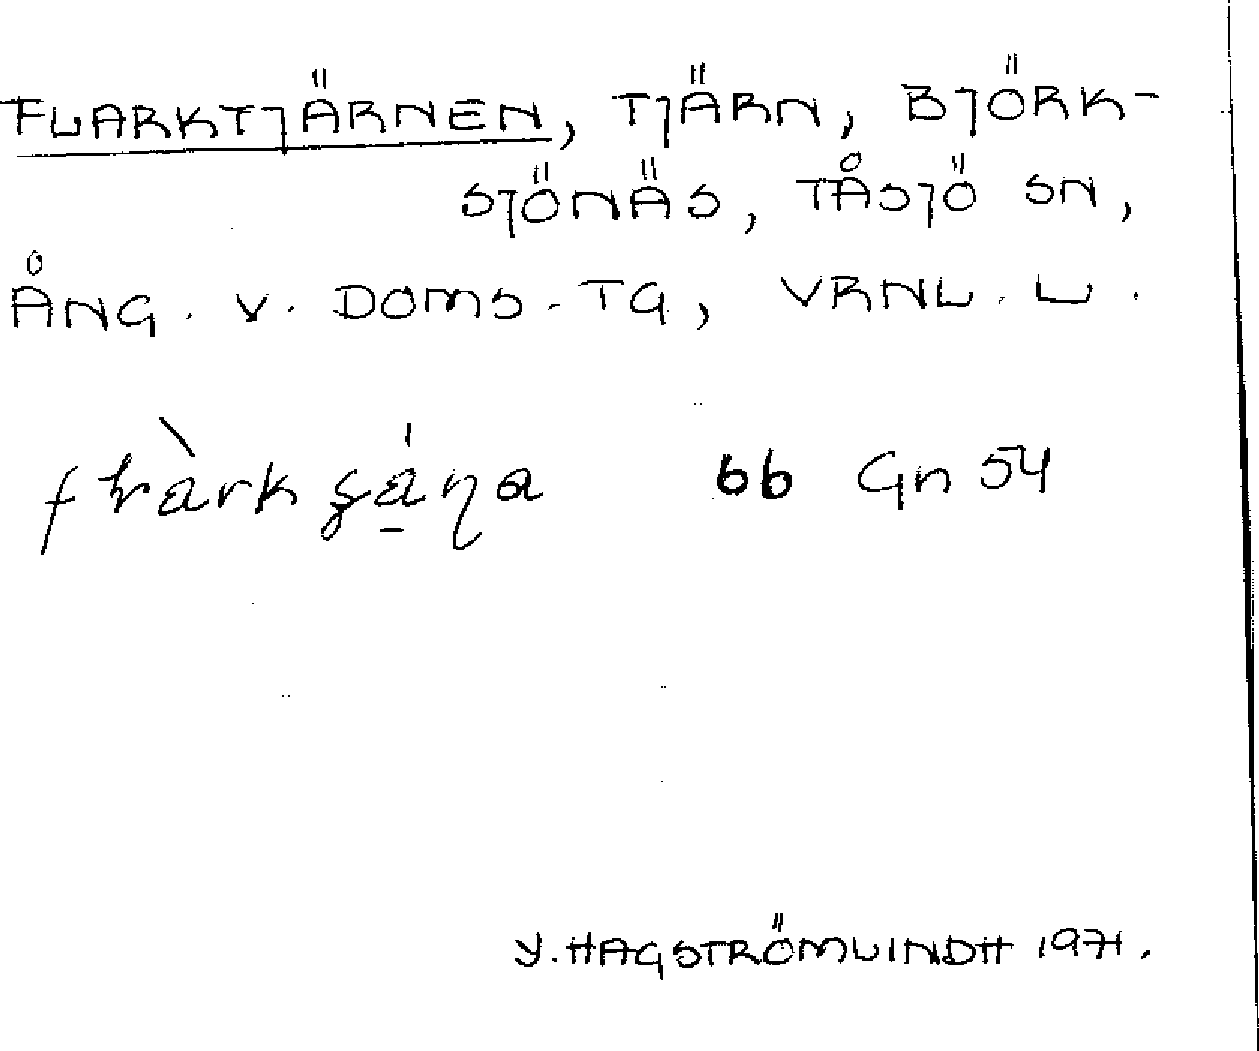 FLARKTJÄRNEN, TJÄRN, BJÖRK-
SJÖNÄS, TÅSJÖ SN,
ÅNG. V. DOMS-TG, VRNL. L.
bb Gn 54
Y. HAGSTRÖMLINDH 1971.